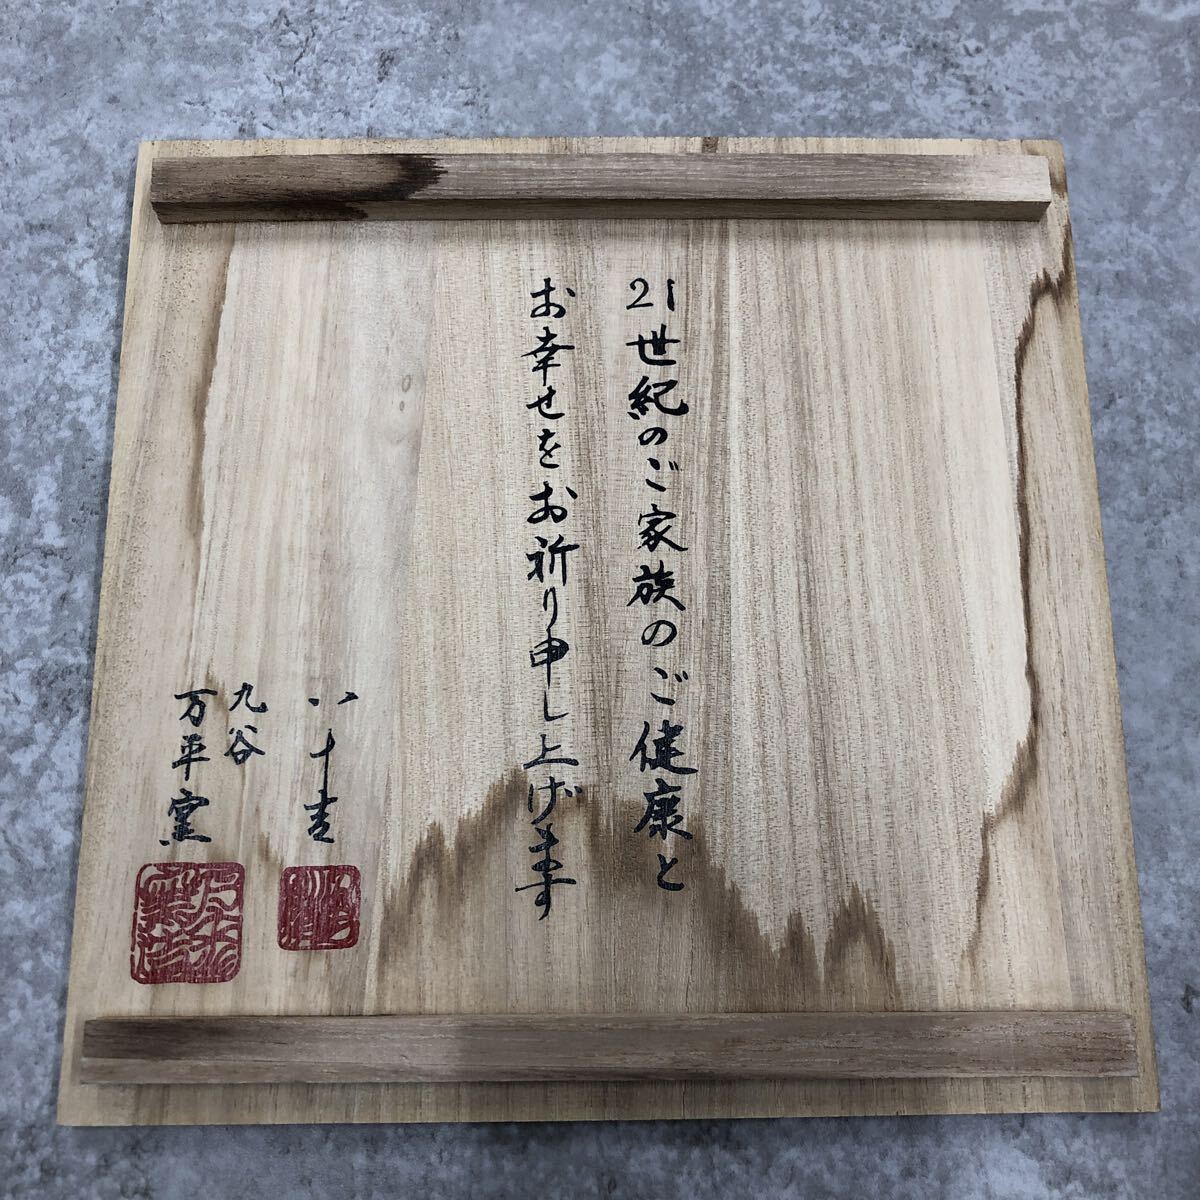 21世紀のご家族のご健康と
お幸せをお祈り申し上げます
八十吉
九谷
万平窯